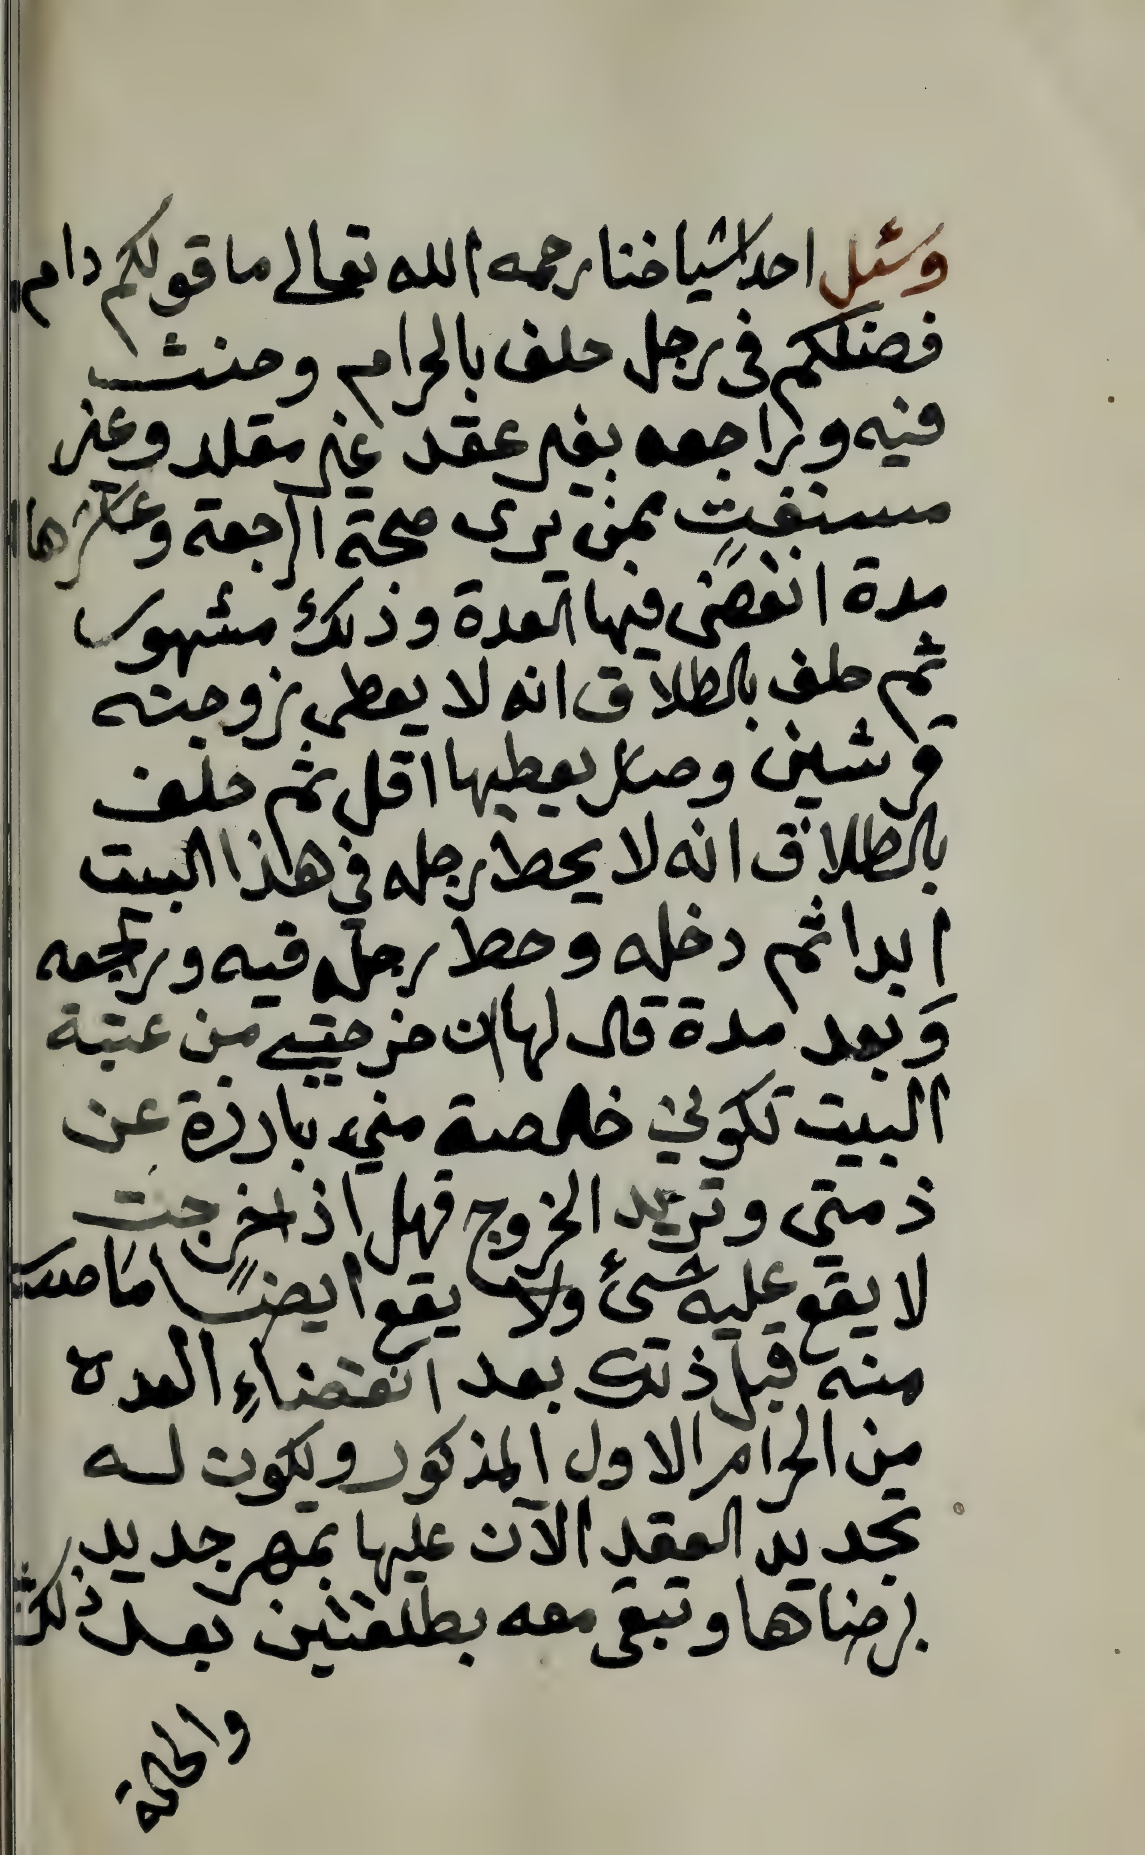 وسئل احد اشياخنا رحمه الله تعالى ما قولكم دام
فضلكم فى رجل حلف بالحرام وحنث
فيه وراجعه بغير عقد غير مقلد وغير
مستفتٍ ممن يرى صحة الرجعة وعاشرها
مدة انقضى فيها العدة وذلك مشهور
ثم حلف بالطلاق انه لا يعطى زوجته
قرشين وصار يعطيها اقل ثم حلف
بالطلاق انه لا يحط رجله في هذا البيت
ابدا ثم دخله وحط رجله فيه ورجعه
وبعد مدة قال لها ان خرجتي من عتبة
البيت تكوني خالصة مني بارزة عن
ذمتى وتريد الخروج فهل اذا خرجت
لا يقع عليه شئ ولا يقع ايضا ما صدر
منه قبل ذلك بعد انقضاء العده
من الحرام الاول المذكور ويكون له
تجديد العقد الآن عليها بمهر جديد
برضاها وتبقى معه بطلقتين بعد ذلك
والحالة